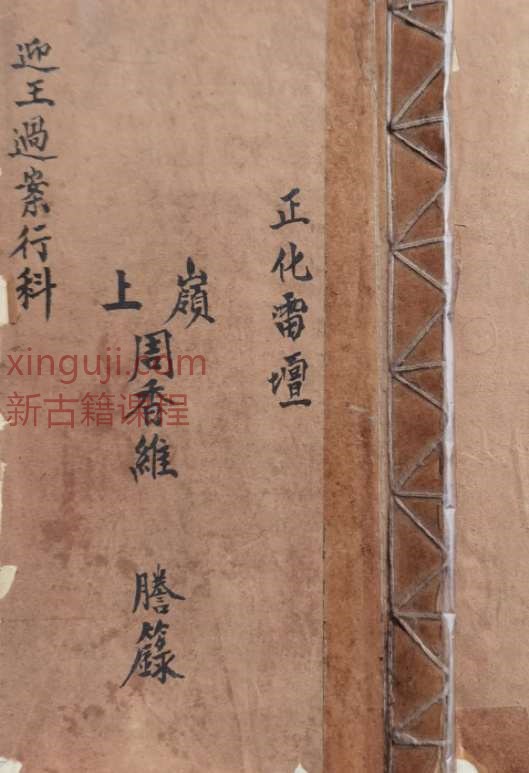 正化雷壇
嶺上
周香維 謄籙
迎王過案行科
xinguji.com
新古籍课程